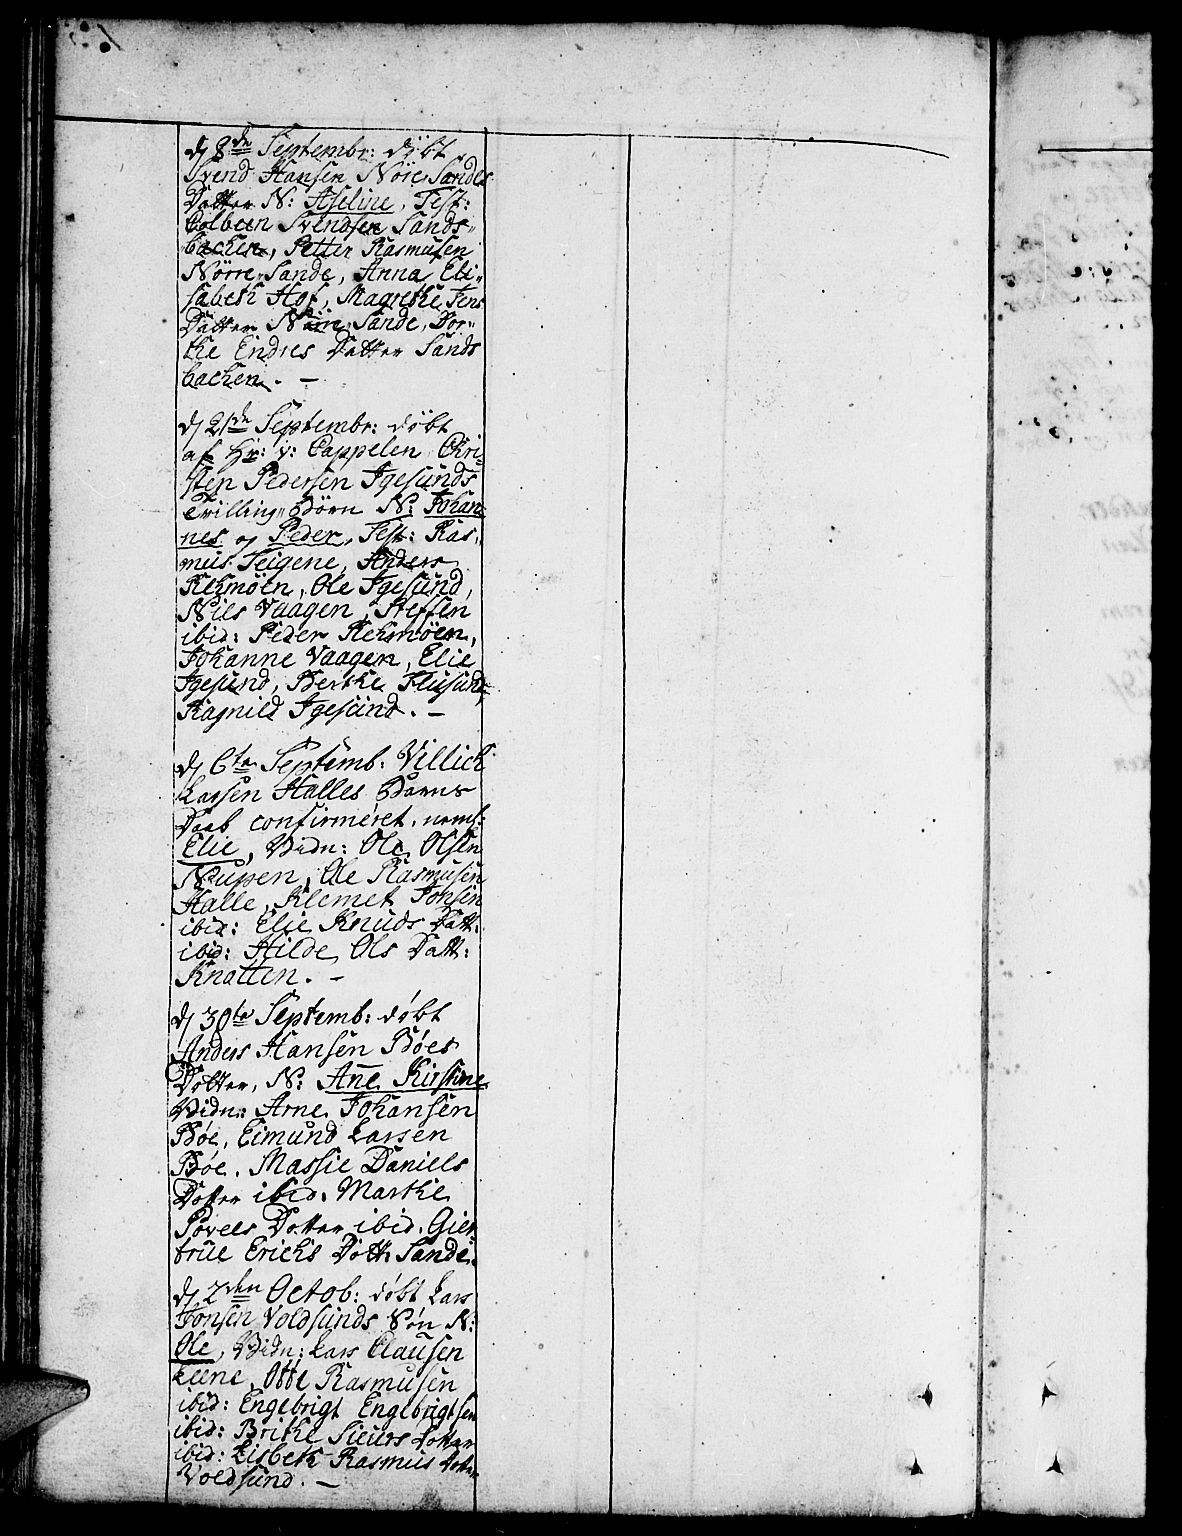 d 8de Septembr: döbt
Svend Hansen Nörre Sandes
Datter N: Aseline, Test:
Colbeen Svendsen Sands-
bachen, Petter Rasmusen
Nörre-Sande, Anna Eli-
sabeth Hof, Magrethe Jens
Datter Nörre-Sande, Dor-
the Endres Datter Sands
bachen. —
d 21de Septembr: döbt
af Hr: v: Cappelen Chri-
sten Pedersen Igesunds
Tvilling-Börn N: Johan
nes og Peder, Test: Ras-
mus Teigene, Anders
Rehmöen, Ole Igesund,
Niels Vaagen, Steffen
ibid: Peder Rehmöen,
Johanne Vaagen, Elie
Igesund, Berthe Flusund,
Ragnild Igesund. —
d 6te Septemb: Villich
Larsen Halles Barns
Daab confirmeret, nemh:
Elie, Vidn: Ole Olsen
Nupen, Ole Rasmusen
Halle, Klemet Johsen
ibid: Elie Knuds Datt:
ibid: Hilde Ols Datt:
Knatten. —
d 30te Septemb: döbt
Anders Hansen Böes
Dotter, N: Añe Kirstine
Vidn: Arne Johansen
Böe, Eimund Larsen
Böe. Massie Daniels
Dotter ibid. Marthe
Povels Dotter ibid. Gier
true Erichs Dott: Sande.
d 2den Octob: döbt Lars
Jonsen Voldsunds Sön N:
Ole, Vidn: Lars Clausen
teene, Otte Rasmusen
ibid: Engebrigt Engebrigtsen
ibid: Brithe Siurs Dotter
ibid: Lisbeth Rasmus Dotter
Voldsund. —